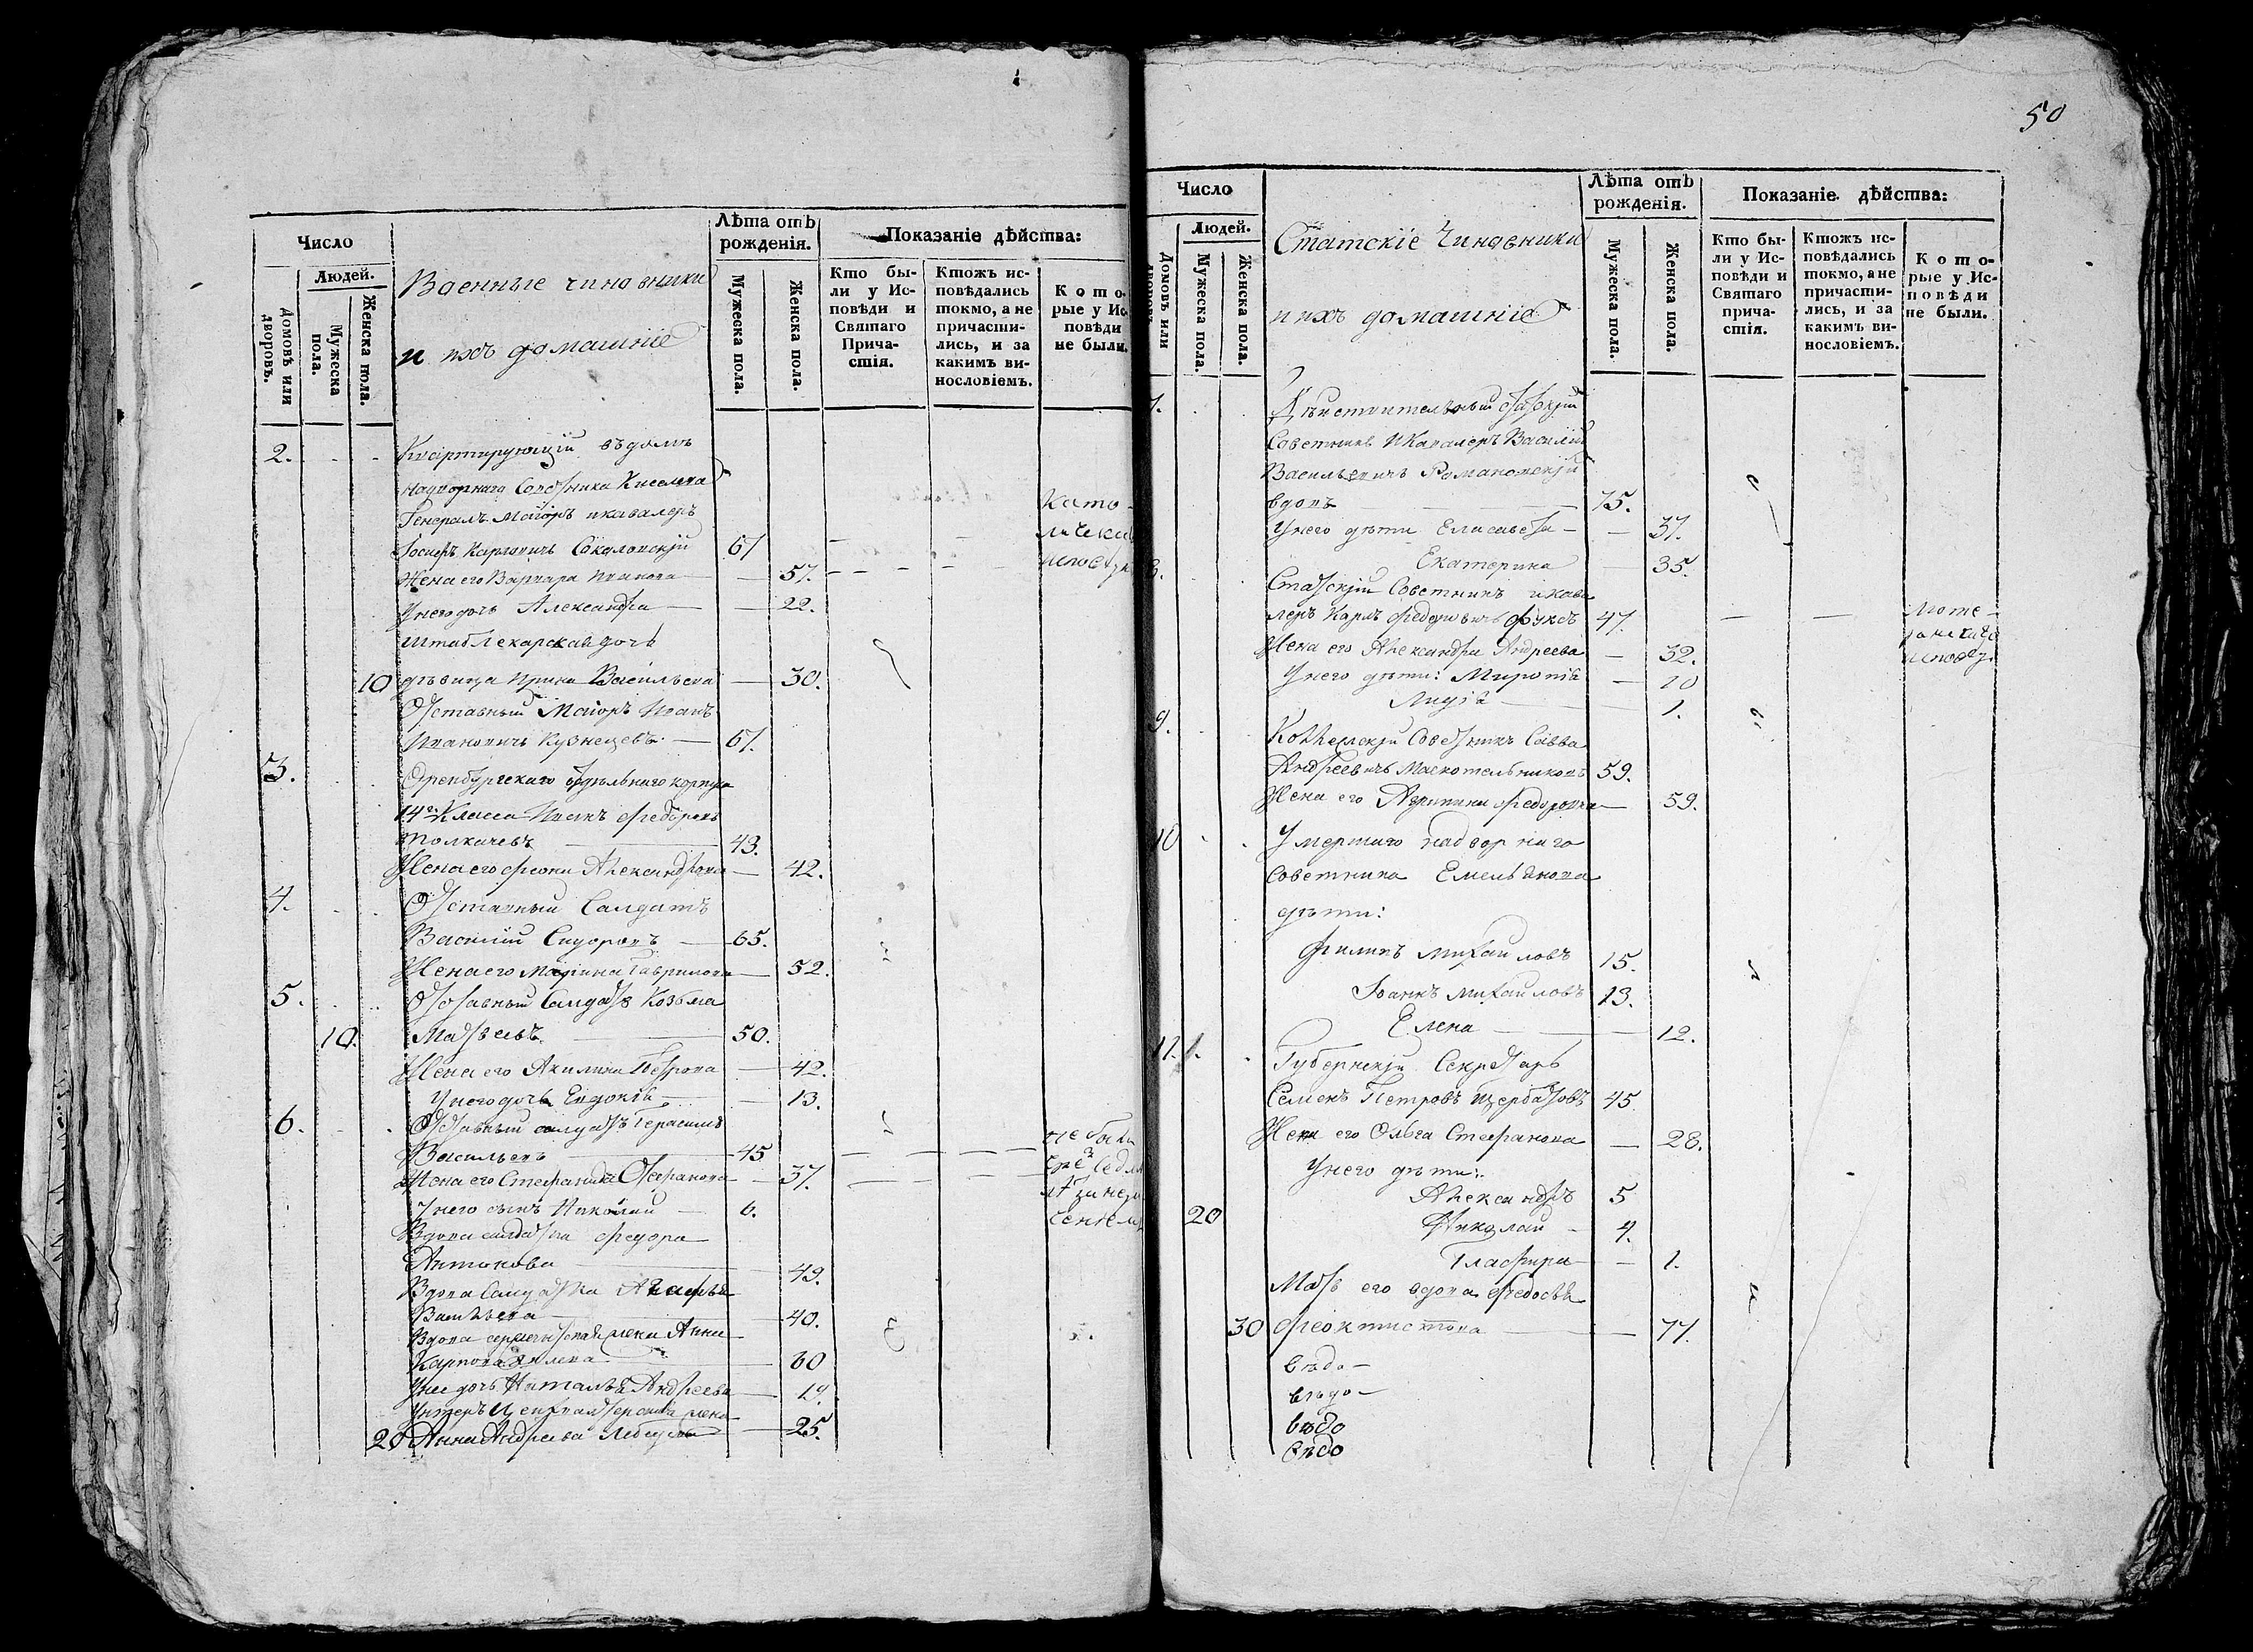 Число
Людей.
Домовъ или дворовъ.
Мужеска пола.
Женска пола.
Военные чиновники
и ихъ домашніе
Лѣта отъ рожденія.
Мужеска пола.
Женска пола.
Показаніе дѣйства:
Кто бы-
ли у Ис-
повѣди и
Святаго
Прича-
стія.
Ктожъ ис-
повѣдались
токмо, а не
причасти-
лись, и за
какимъ ви-
нословіемъ.
Кото-
рые у Ис-
повѣди
не были.
2. Квартирующій въ домѣ
надворнаго Советника Киселева
Генералъ Маіоръ и кавалеръ
Іосифъ Карловичъ Соколовскій 61
Като-
Жена его Варвара Иванова — 57.
У него дочь Александра — 22.
Штаблекарская дочь
10 дѣвица Ирина Васильева — 30.
Отставный Маіоръ Иванъ
Ивановичъ Кузнецовъ — 61.
3. Оренбургскаго отдѣльнаго корпуса
14го Класса Иванъ Федоровъ
Толкачевъ 43.
Жена его Александрова — 42.
4. Отставный Салдатъ
Василій Сидоровъ — 65.
Жена его Марина Гаврилова — 52.
5. Отставный Салдатъ Козьма
10. Матвеевъ 50.
Жена его Акилина Петрова — 42.
У него дочь Евдокія — 13.
6. Отставный салдатъ Герасимъ
Васильевъ — 45
Жена его Стефанида Стефанова — 37.
У него сынъ Николай — 6.
Вдова салдатка Федора
Антонова — 49.
Вдова Салдатка Агафья
Васильева — 40.
Вдова жена Анна
Карпова 60
У нее дочь Наталья Андреева — 19.
Унтеръ жена
20 Анна Андреева — 25.
50
Число
Людей.
Домовъ или дворовъ.
Мужеска пола.
Женска пола.
Статскіе Чиновники
и ихъ домашніе
Лѣта отъ рожденія.
Мужеска пола.
Женска пола.
Показаніе дѣйства:
Кто бы-
ли у Ис-
повѣди и
Святаго
прича-
стія.
Ктожъ ис-
повѣдались
токмо, а не
причасти-
лись, и за
какимъ ви-
нословіемъ.
Кото-
рые у Ис-
повѣди
не были.
7. Дѣйствительный статскій
Советникъ и Кавалеръ Василій
Васильевичъ Романовскій
вдовъ 75.
У него дѣти Елисавета — 37.
Екатерина — 35.
8. Статскій Советникъ и кава
леръ Карлъ Федоровичъ Фуксъ 47.
Жена его Александра Андреева — 32.
У него дѣти: — 10
Лидія — 1.
9. Коллежскій Советникъ Савва
Андреевичъ Москотельниковъ 59.
Жена его Агрипина Федоровна — 59.
10 Умершаго надворнаго
Советника Емельянова
дѣти:
Филипъ Михайловъ 15.
Іоаннъ Михайловъ 13.
Елена — 12.
11. 1. Губернскій Секретарь
Семенъ Петровъ Щербатовъ 45
Жена его Ольга Стефанова — 28.
У него дѣти:
Александръ 5
20 Николай — 4.
Глафира — 1.
Мать его вдова Федосья
30 Феоктистова — 77.